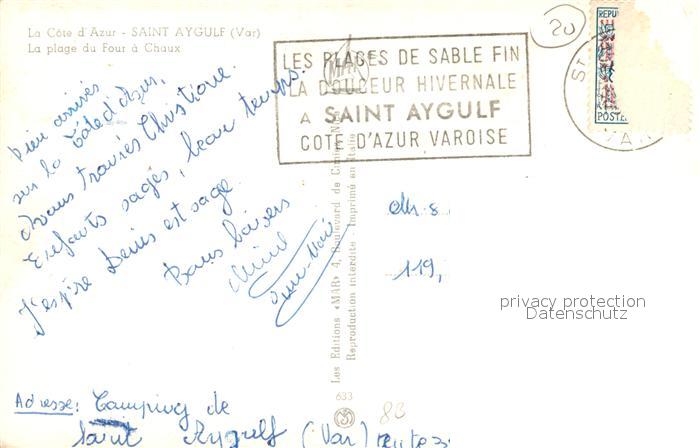 La Côte d'Azur - SAINT AYGULF (Var)
La plage du Four à Chaux
Bien arrivés
sur la Côte d'Azur,
Avons trouvés Christiane.
Enfants sages, beau temps.
J'espère Denis est sage
Bons baisers
Jean-Marie
Adresse: Camping de
Saint Aygulf (Var)
LES PLAGES DE SABLE FIN
LA DOUCEUR HIVERNALE
A SAINT AYGULF
COTE D'AZUR VAROISE
20
REPU
POSTE
ST
VAR
Les Editions «MAR» 4, Boulevard de
Reproduction interdite - Imprimé en Italie
MAR
633
119,
88
privacy protection
Datenschutz